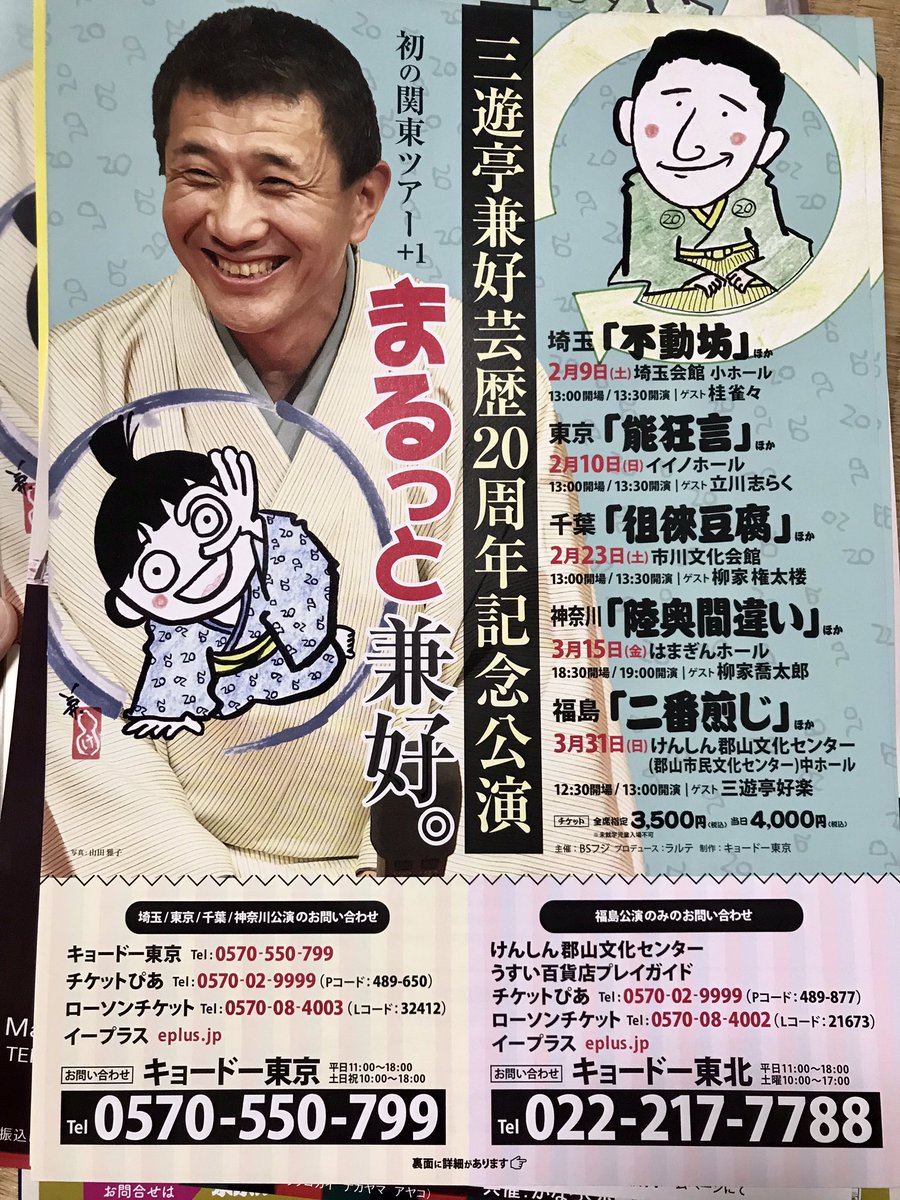 初の関東ツアー+1
まるっと兼好。
三遊亭兼好芸歴20周年記念公演
20 20
埼玉「不動坊」ほか
2月9日(土)埼玉会館 小ホール
13:00開場/13:30開演|ゲスト 桂雀々
東京「能狂言」ほか
2月10日(日)イイノホール
13:00開場/13:30開演|ゲスト 立川志らく
千葉「徂徠豆腐」ほか
2月23日(土)市川文化会館
13:00開場/13:30開演|ゲスト 柳家 権太楼
神奈川「陸奥間違い」ほか
3月15日(金)はまぎんホール
18:30開場/19:00開演|ゲスト 柳家喬太郎
福島「二番煎じ」ほか
3月31日(日)けんしん郡山文化センター
(郡山市民文化センター)中ホール
12:30開場/13:00開演|ゲスト 三遊亭好楽
チケット 全席指定 3,500円(税込) 当日 4,000円(税込)
※未就学児童入場不可
主催:BSフジ プロデュース:ラルテ 制作:キョードー東京
写真:山田雅子
埼玉/東京/千葉/神奈川公演のお問い合わせ
キョードー東京 Tel:0570-550-799
チケットぴあ Tel:0570-02-9999(Pコード:489-650)
ローソンチケット Tel:0570-08-4003(Lコード:32412)
イープラス eplus.jp
お問い合わせ キョードー東京 平日11:00〜18:00
土日祝10:00〜18:00
Tel 0570-550-799
福島公演のみのお問い合わせ
けんしん郡山文化センター
うすい百貨店プレイガイド
チケットぴあ Tel:0570-02-9999(Pコード:489-877)
ローソンチケット Tel:0570-08-4002(Lコード:21673)
イープラス eplus.jp
お問い合わせ キョードー東北 平日11:00〜18:00
土曜10:00〜17:00
Tel 022-217-7788
裏面に詳細があります
Ma
TEL
振込
お問合せは
アカヤマ アヤコ)